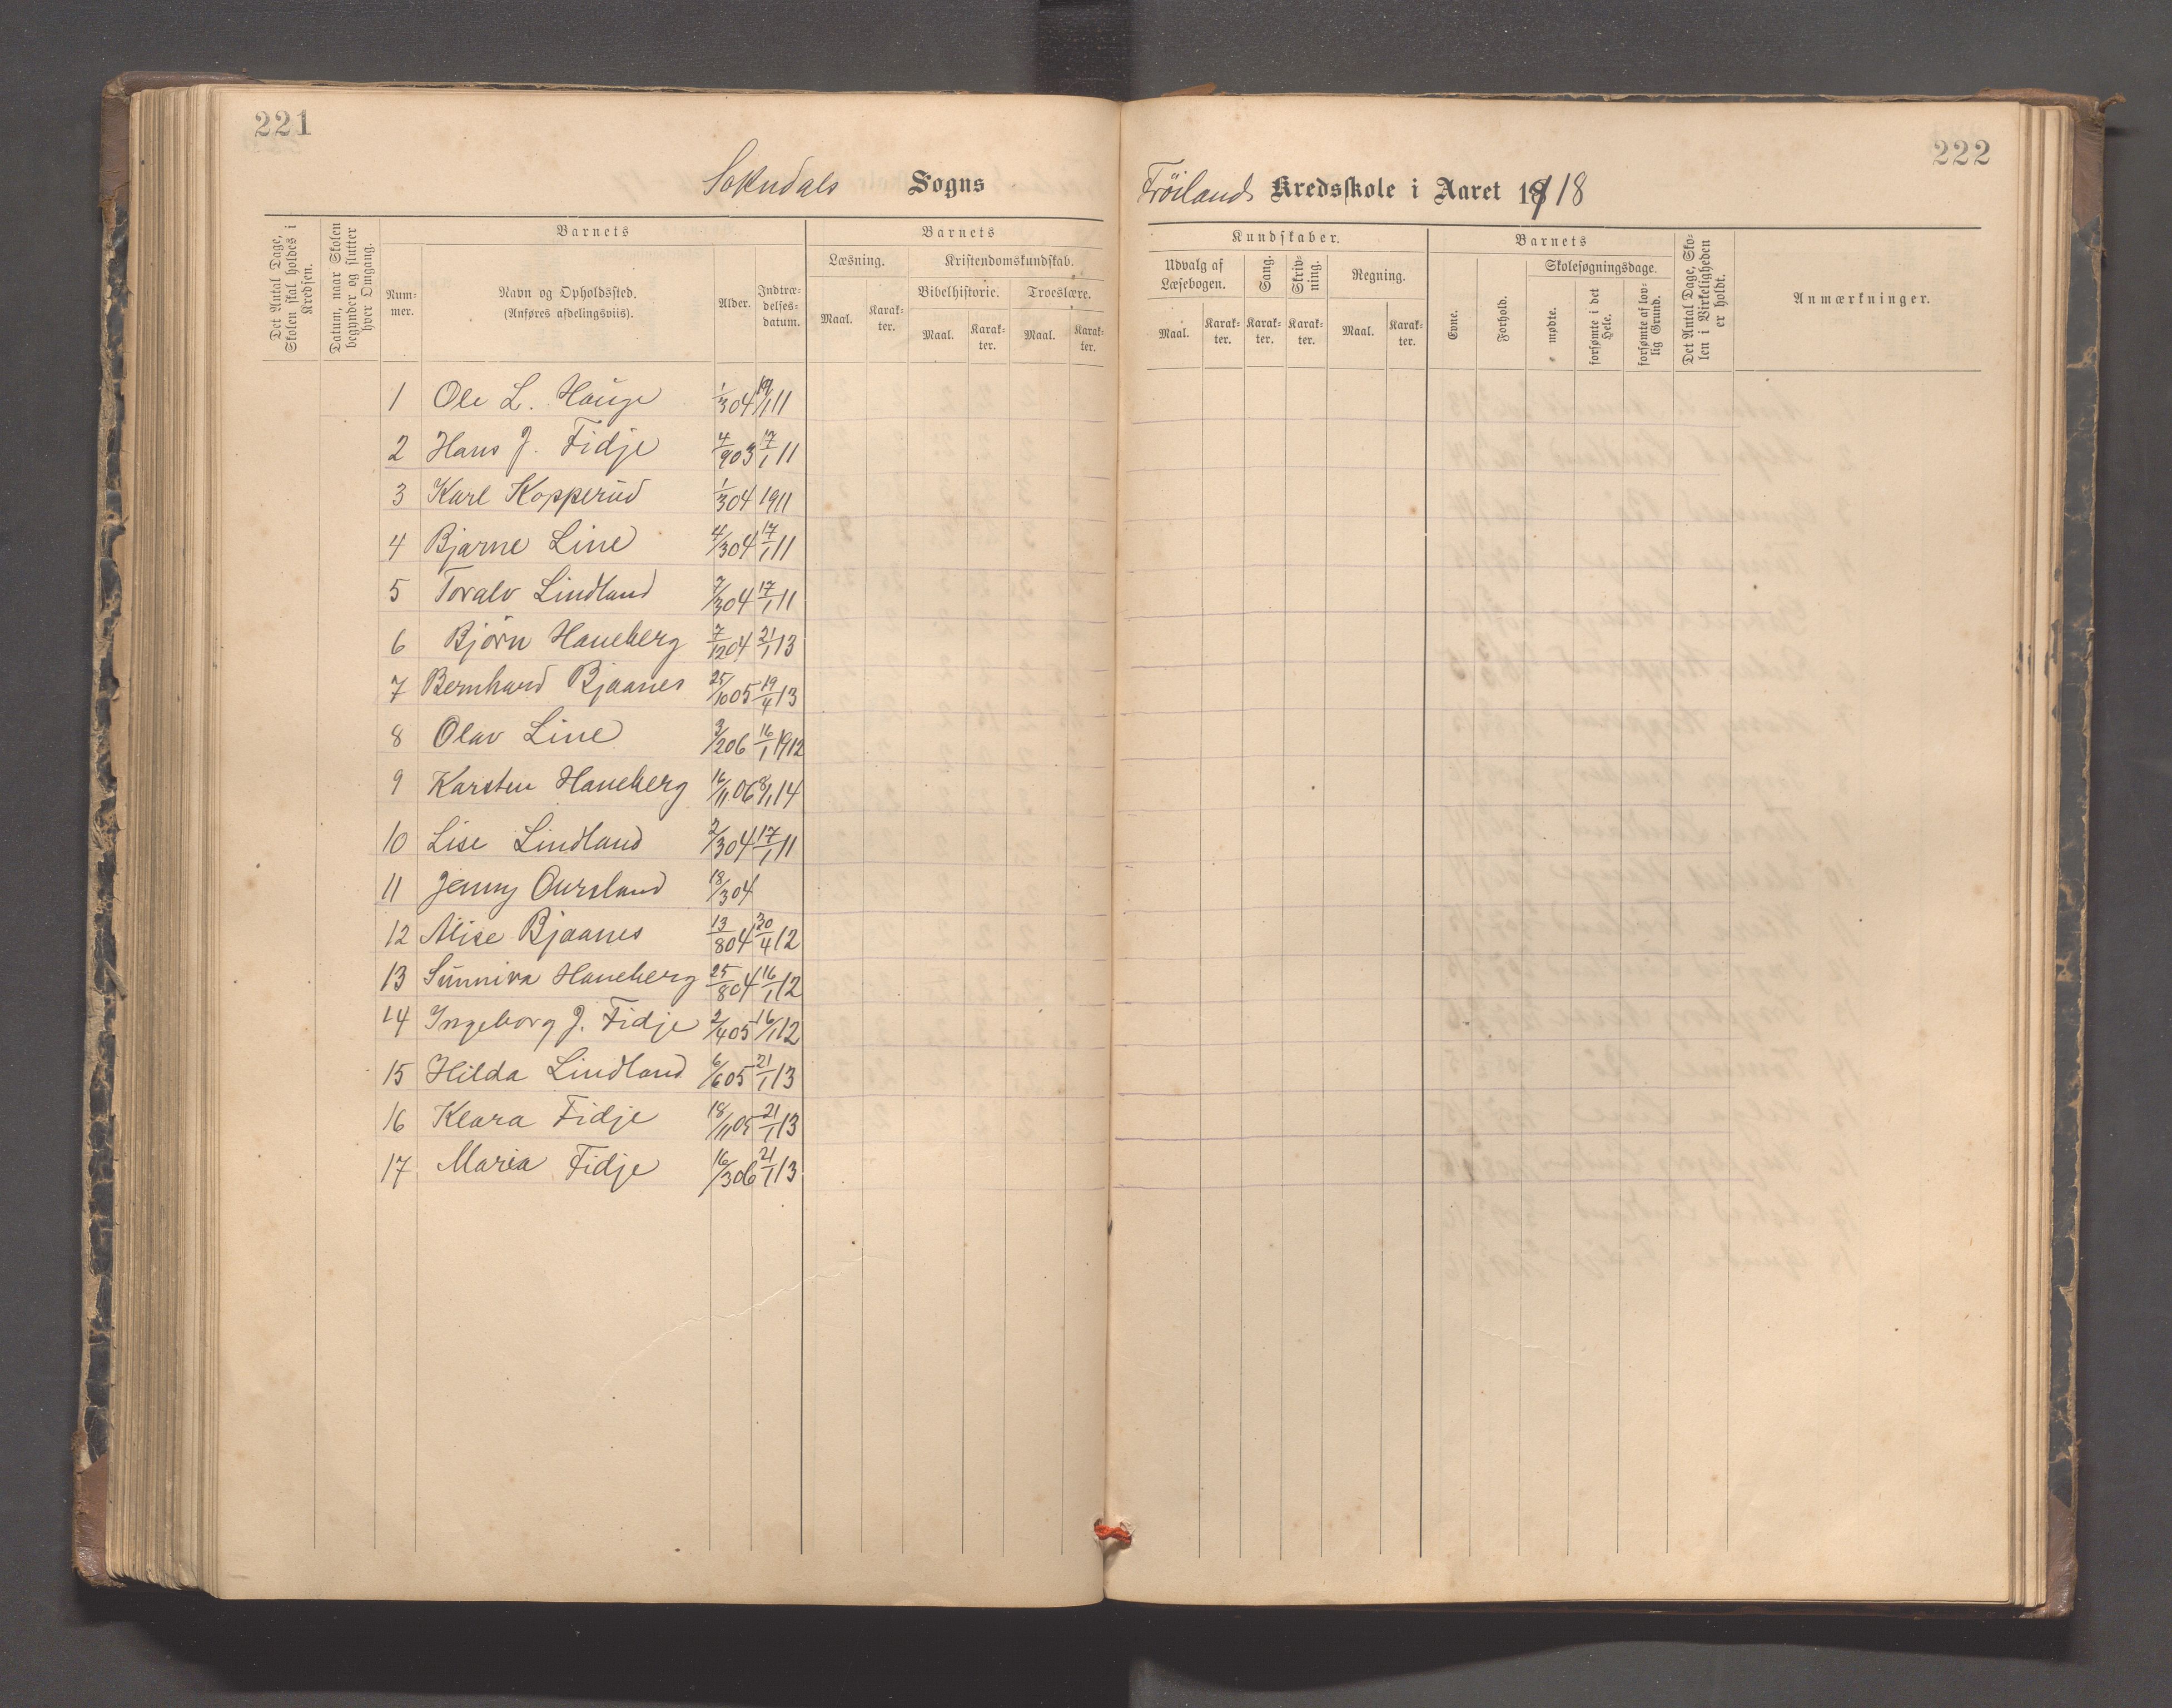 221
222
Sokndals Sogns
Frøilands Kredsskole i Aaret 1918
Det Antal Dage, Skolen skal holdes i Kredsen.
Datum, naar Skolen begynder og slutter hver Omgang.
Barnets
Barnets
Kundskaber.
Barnets
Nummer.
Navn og Opholdssted.
(Anføres afdelingsviis).
Alder.
Indtrædelses-datum.
Læsning.
Kristendomskundskab.
Bibelhistorie.
Troeslære.
Maal. Karakter. Maal. Karakter. Maal. Karakter.
Udvalg af Læsebogen.
Sang.
Skrivning.
Regning.
Maal. Karakter. Karakter. Karakter. Maal. Karakter.
Evne.
Forhold.
Skolesøgningsdage.
mødte.
forsømte i det Hele.
forsømte af lovlig Grund.
Det Antal Dage, Skolen i Virkeligheden er holdt.
Anmærkninger.
1 Ole L. Hauge 1/3 04 19/1 11
2 Hans J. Fidje 4/9 03 17/1 11
3 Karl Kopperud 1/3 04 1911
4 Bjarne Line 4/3 04 17/1 11
5 Toralv Lindland 7/3 04 17/1 11
6 Bjørn Haneberg 7/12 04 21/1 13
7 Bernhard Bjaanes 25/10 05 19/4 13
8 Olav Line 3/2 06 16/1 1912
9 Karsten Haneberg 16/11 06 8/1 14
10 Lise Lindland 2/3 04 17/1 11
11 Jenny Oursland 18/3 04
12 Alise Bjaanes 13/8 04 20/4 12
13 Sunniva Haneberg 25/8 04 16/1 12
14 Ingeborg J. Fidje 2/4 05 16/1 12
15 Hilda Lindland 6/6 05 21/1 13
16 Klara Fidje 18/11 05 21/1 13
17 Maria Fidje 16/3 06 21/1 13